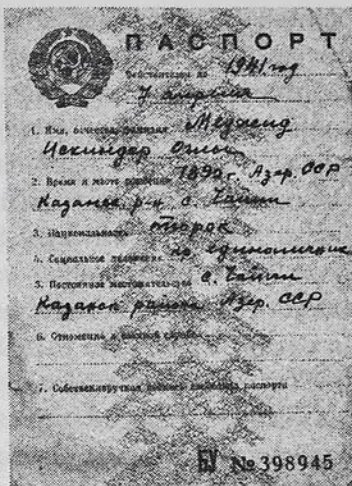 ПАСПОРТ
Действителен по 1941 год
7 апреля
1. Имя, отчество, фамилия Меджид
Искендер Оглы
2. Время и место рождения 1890 г. Азер. ССР
р-н с.
3. Национальность тюрок
4. Социальное положение кр. единоличник
5. Постоянное местожительство с.
района Азер. ССР
6. Отношение к военной службе
7. Собственноручная подпись владельца паспорта
БУ № 398945